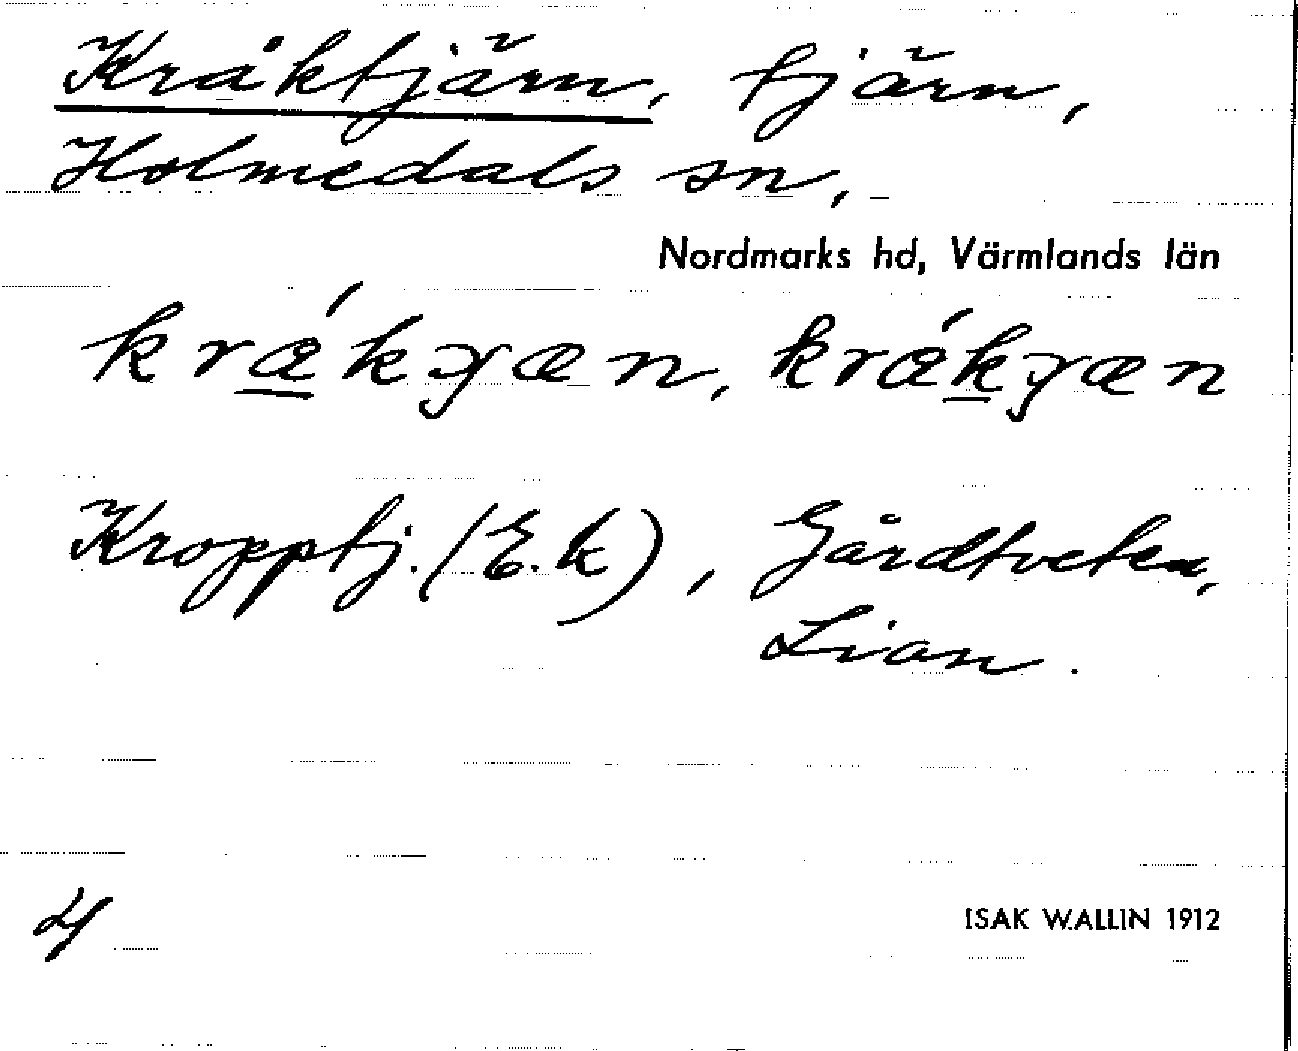 Kråktjärn, tjärn,
Holmedals sn,
Nordmarks hd, Värmlands län
krǽ̲kɉæn, krǽk̲ɉæn
Kropptj. (E.k), Gårdtveten,
Lian.
4
ISAK WALLIN 1912